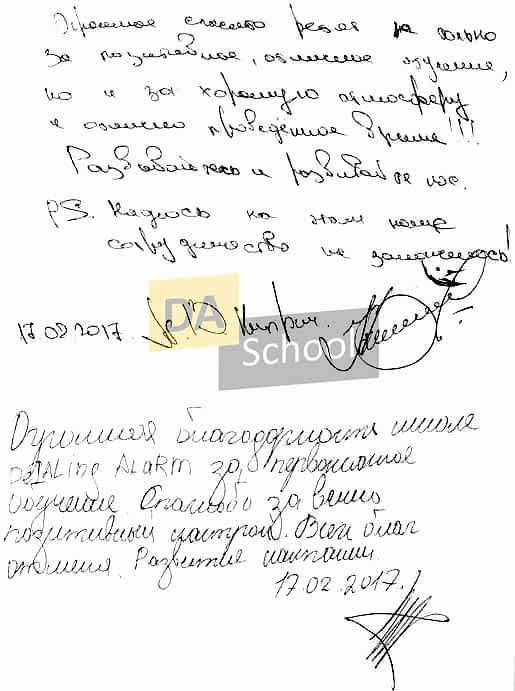 Огромное спасибо ребят не только
за позитивное, отличное обучение,
но и за хорошую атмосферу
и отлично проведённое время!!!
Развивайтесь и развивайте нас.
P.S. Надеюсь на этом наше
сотрудничество не закончилось!
DA
School
17.02.2017.
Огромная благодарность школе
DETALing ALARM за первоклассное
обучение. Спасибо за вечно
позитивный настрой. Всех благ
от меня. Развития компании.
17.02.2017.